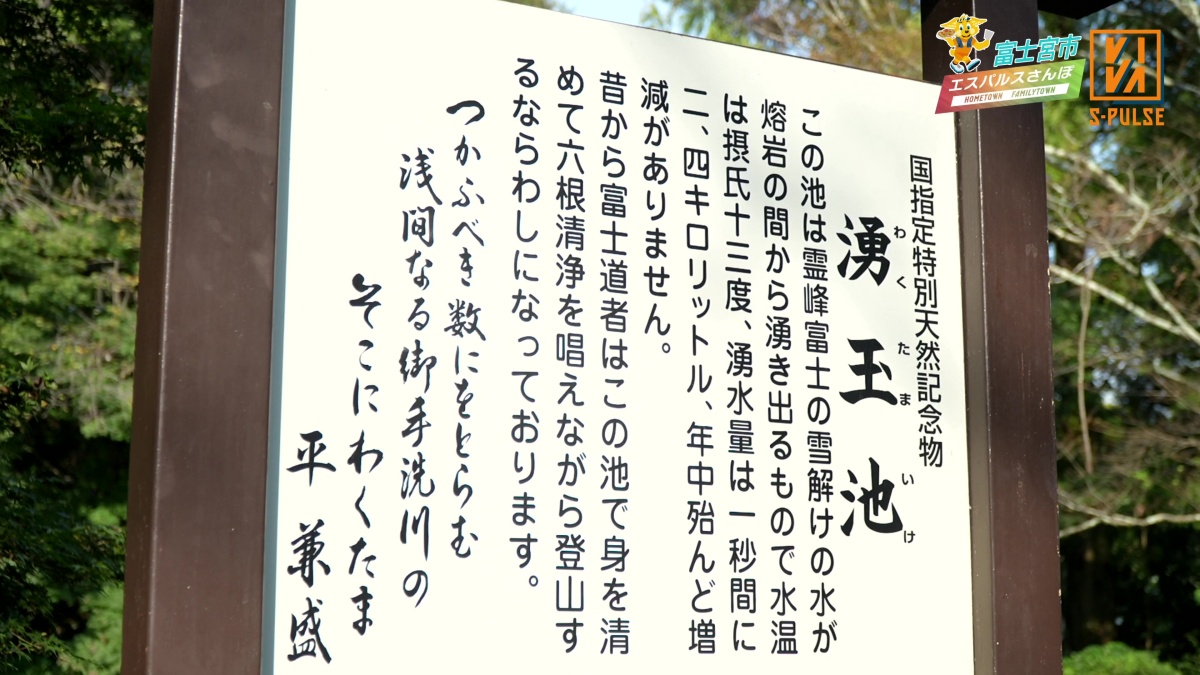 国指定特別天然記念物
湧玉池
わくたまいけ
この池は霊峰富士の雪解けの水が
熔岩の間から湧き出るもので水温
は摂氏十三度、湧水量は一秒間に
二、四キロリットル、年中殆んど増
減がありません。
昔から富士道者はこの池で身を清
めて六根清浄を唱えながら登山す
るならわしになっております。
つかふべき数にをとらむ
浅間なる御手洗川の
そこにわくたま
平兼盛
富士宮市
エスパルスさんぽ
HOMETOWN FAMILYTOWN
S-PULSE